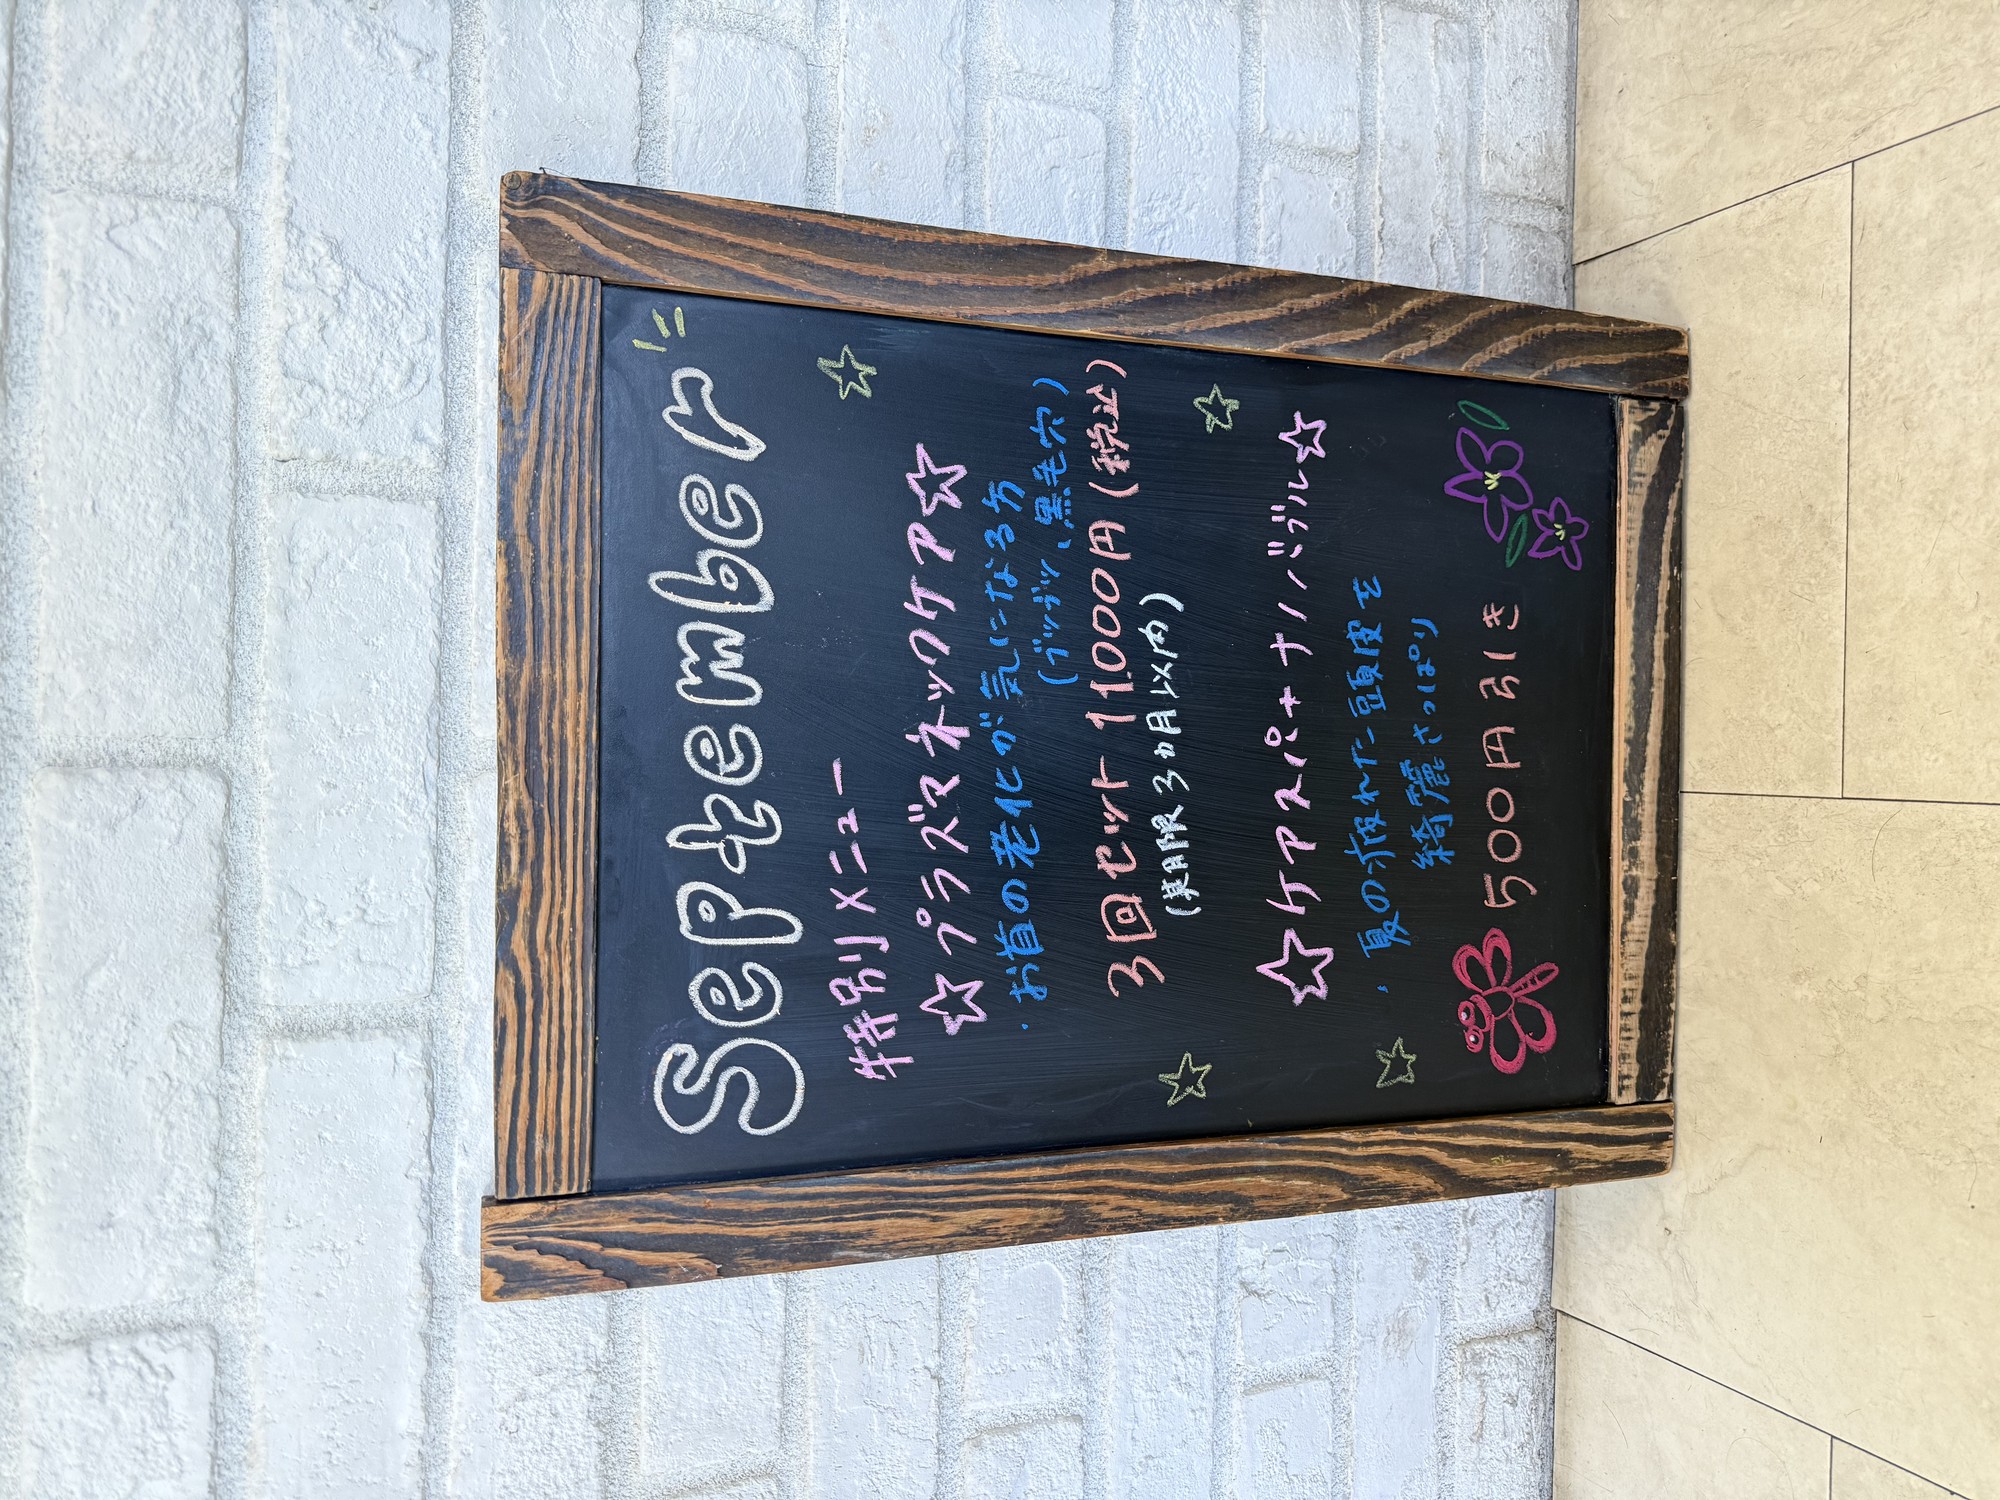 September
特別メニュー
☆プラズマネックケア☆
・お首の老化が気になる方
(ブツブツ、黒毛穴)
3回セット 11.000円(税込)
(期限 3ヵ月以内)
☆ケアスパ+ナノバブル☆
・夏の疲れた頭皮を
綺麗さっぱり
500円引き